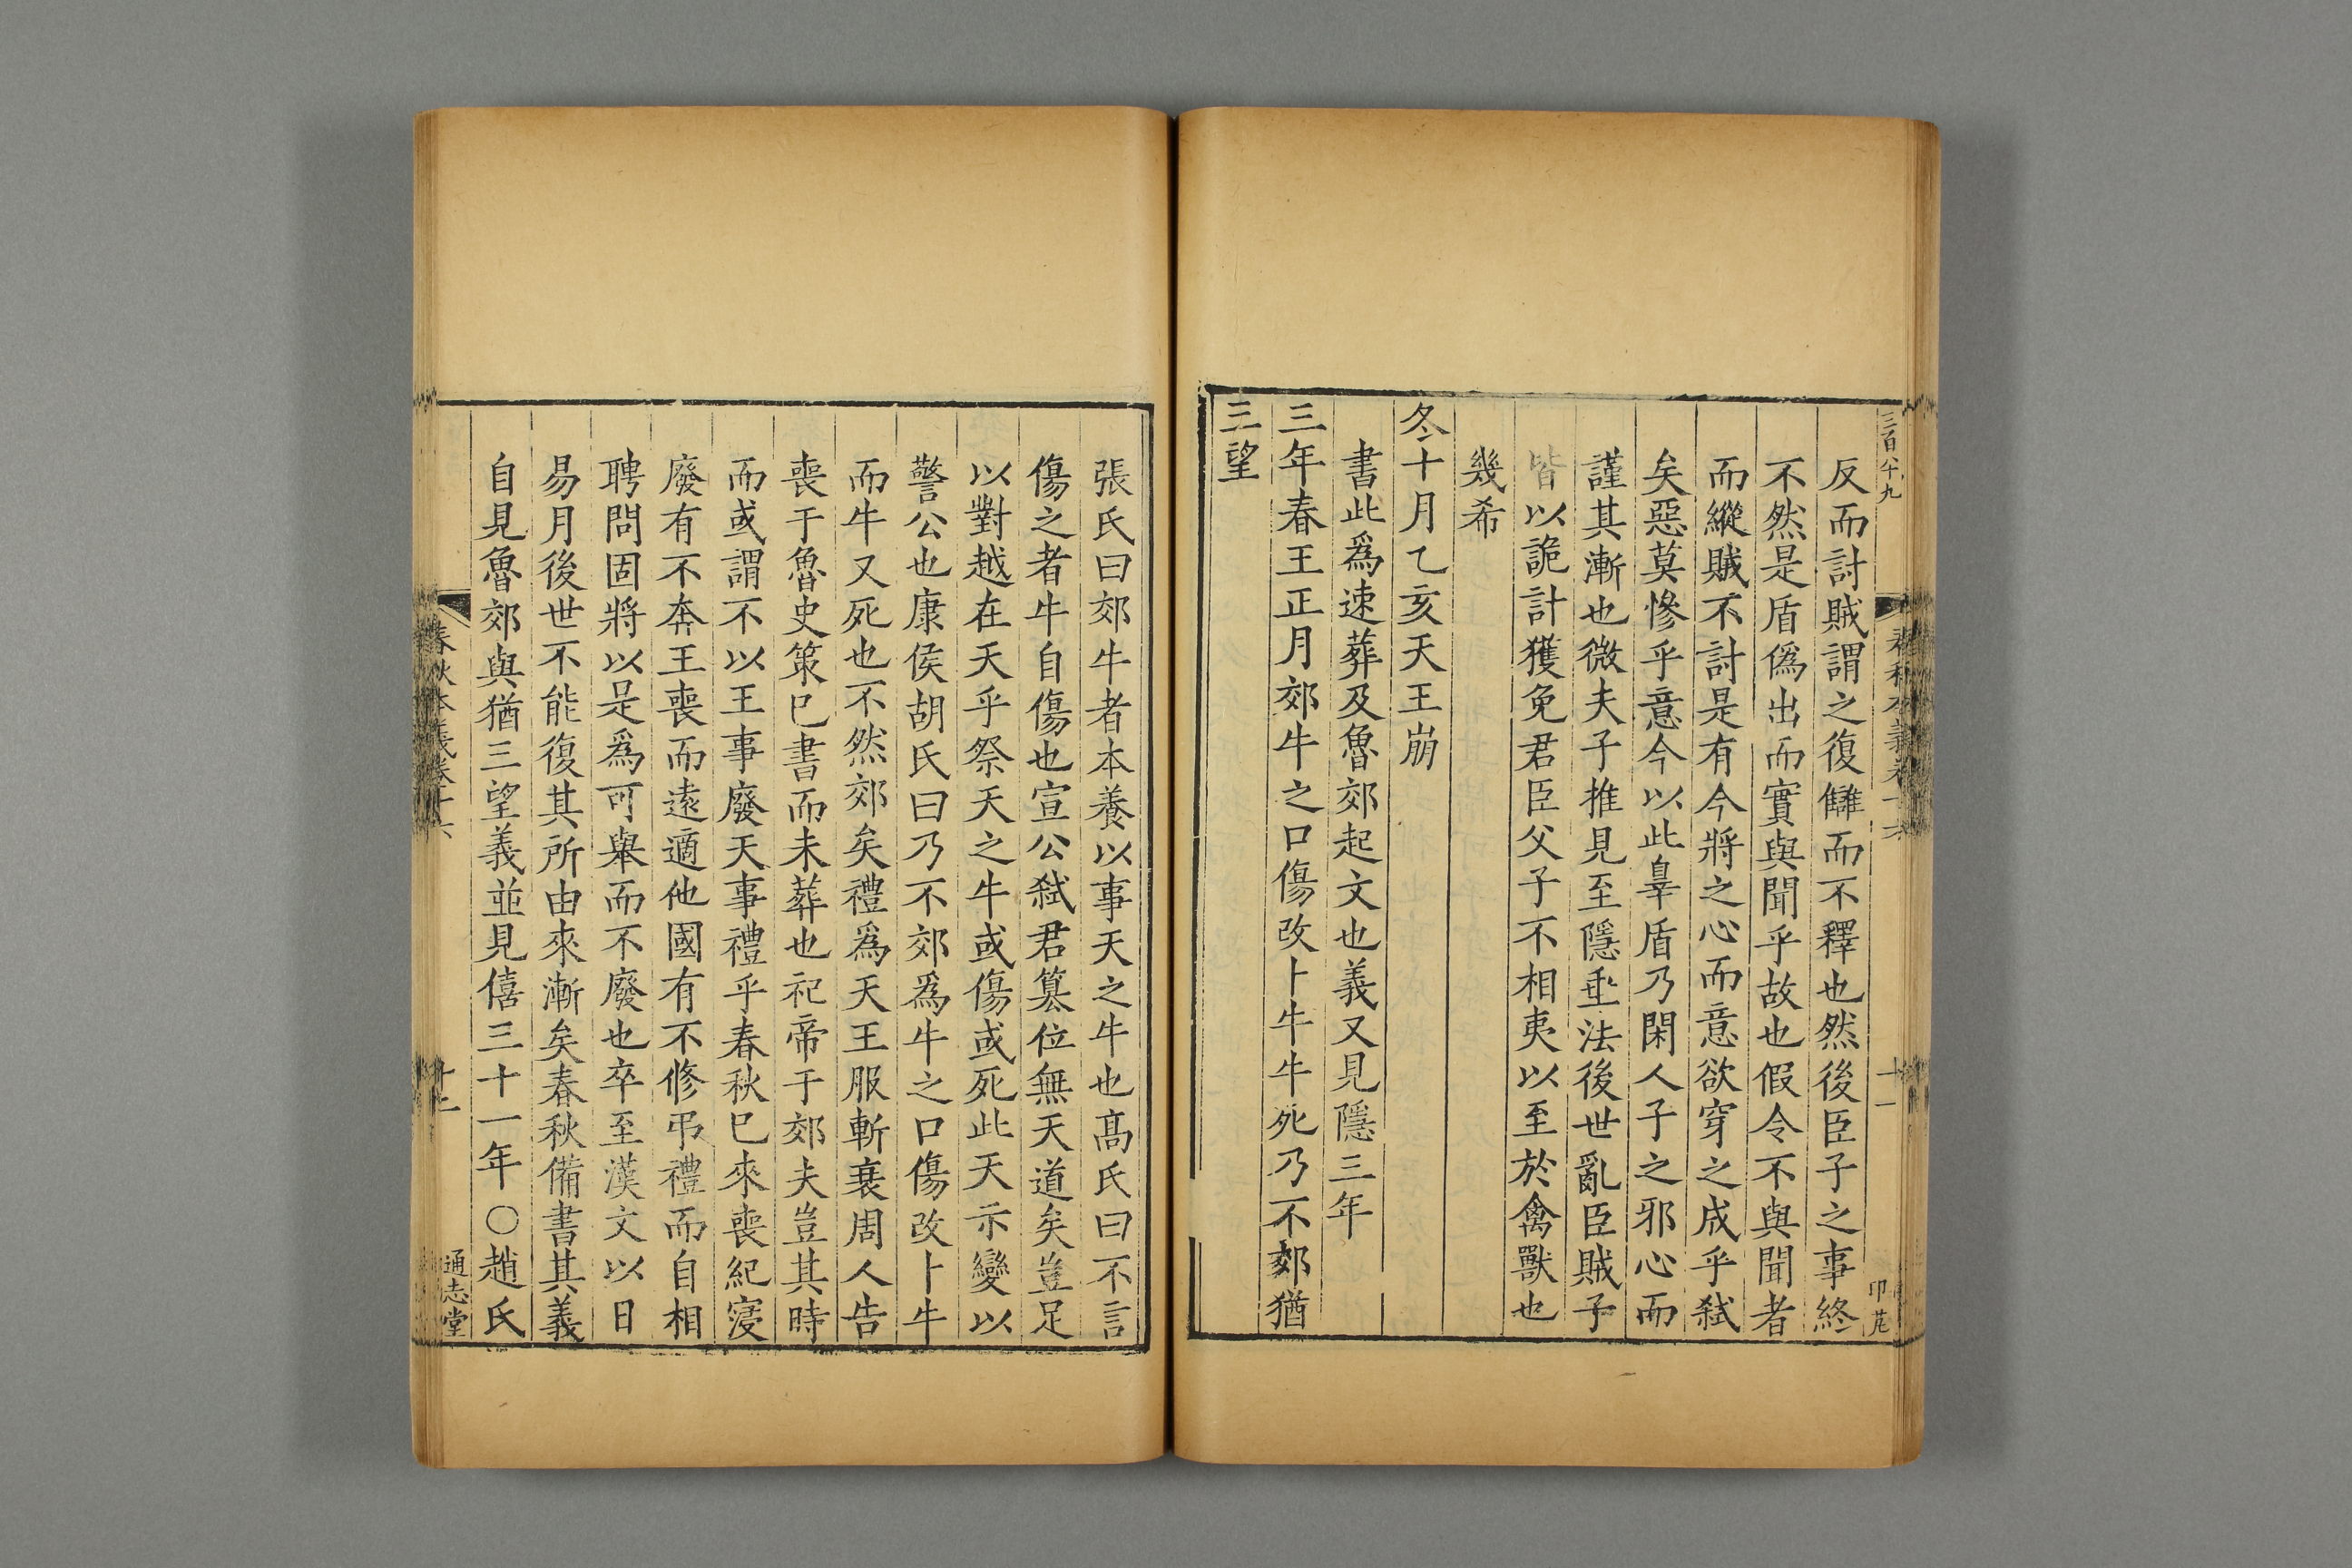 三百八十九
春秋本義卷十六
十一
印芑
反而討賊謂之復讎而不釋也然後臣子之事終
不然是盾僞出而實與聞乎故也假令不與聞者
而縱賊不討是有今將之心而意欲穿之成乎弑
矣惡莫慘乎意今以此辠盾乃閑人子之邪心而
謹其漸也微夫子推見至隱垂法後世亂臣賊子
皆以詭計獲免君臣父子不相夷以至於禽獸也
幾希
冬十月乙亥天王崩
書此爲速葬及魯郊起文也義又見隱三年
三年春王正月郊牛之口傷改卜牛牛死乃不郊猶
三望
張氏曰郊牛者本養以事天之牛也高氏曰不言
傷之者牛自傷也宣公弑君簒位無天道矣豈足
以對越在天乎祭天之牛或傷或死此天示變以
警公也康侯胡氏曰乃不郊爲牛之口傷改卜牛
而牛又死也不然郊矣禮爲天王服斬衰周人告
喪于魯史策已書而未葬也祀帝于郊夫豈其時
而或謂不以王事廢天事禮乎春秋已來喪紀寖
廢有不奔王喪而遠適他國有不修弔禮而自相
聘問固將以是爲可舉而不廢也卒至漢文以日
易月後世不能復其所由來漸矣春秋備書其義
自見魯郊與猶三望義並見僖三十一年○趙氏
春秋本義卷十六
通志堂